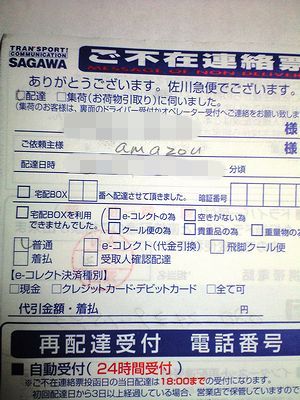 TRANSPORT!
COMMUNICATION
SAGAWA
ご不在連絡票
MESSAGE OF NON DELIVER
ありがとうございます。佐川急便でございます。
配達 集荷(お荷物引取り)に伺いました。
(集荷のお客様は、裏面のドライバー受付かオペレーター受付へご連絡をお願い致しま
様
ご依頼主様 amazou 様
配達日時 分頃
宅配BOX 番へ配達させて頂きました。 暗証番号
宅配BOXを利用できませんでした。
e-コレクトの為 空きがない為
クール便の為 貴重品の為 重量物の為
普通 e-コレクト(代金引換) 飛脚クール便
着払 受取人確認配達
[e-コレクト決済種別]
現金 クレジットカード・デビットカード 全て可
代引金額・着払 円
再配達受付 電話番号
■自動受付(24時間受付)
※ご不在連絡票投函日の当日配達は18:00までの受付になります。
初回配達日から3日以上経過している場合、営業店で保管していますので